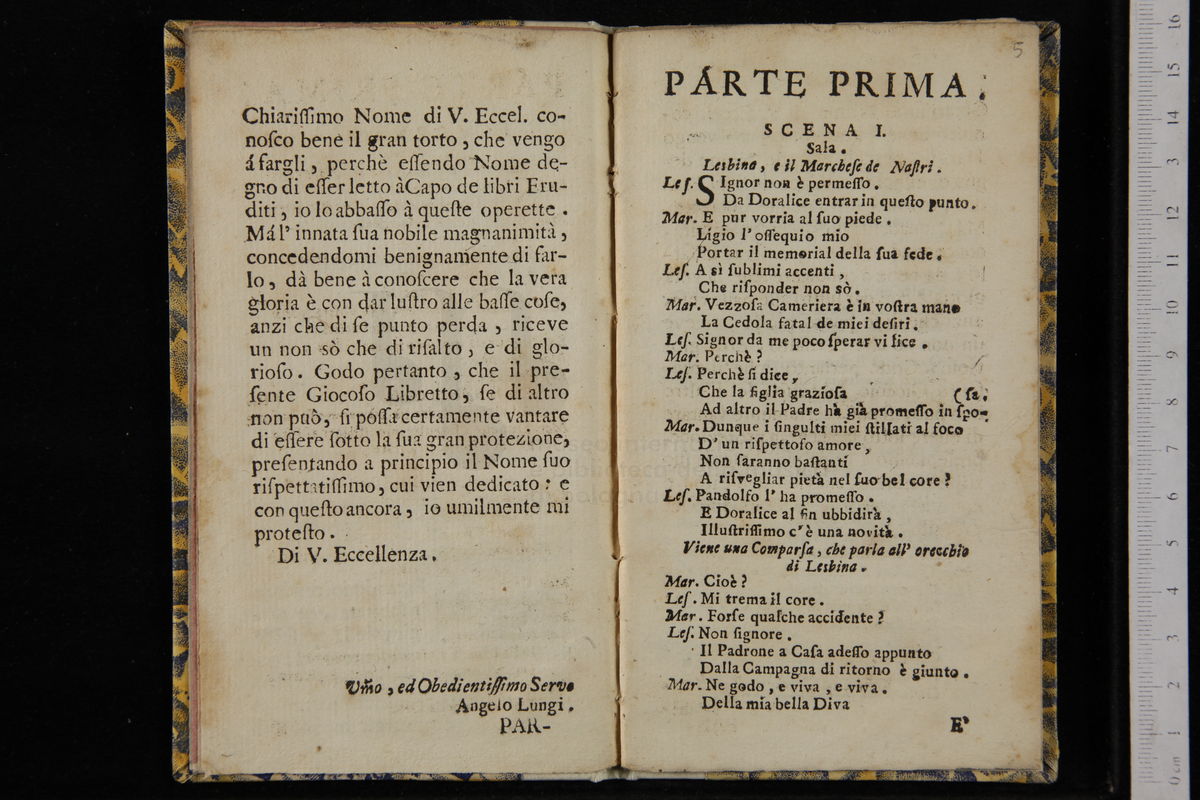 Chiariſſimo Nome di V. Eccel. co-
noſco bene il gran torto, che vengo
á fargli, perchè eſſendo Nome de-
gno di eſſer letto àCapo de libri Eru-
diti, io lo abbaſſo à queſte operette.
Má l' innata ſua nobile magnanimità,
concedendomi benignamente di far-
lo, dà bene à conoſcere che la vera
gloria è con dar luſtro alle baſſe coſe,
anzi che di ſe punto perda, riceve
un non sò che di riſalto, e di glo-
rioſo. Godo pertanto, che il pre-
ſente Giocoſo Libretto, ſe di altro
non può, ſi poſſa certamente vantare
di eſſere ſotto la ſua gran protezione,
preſentando a principio il Nome ſuo
riſpettatiſſimo, cui vien dedicato: e
con queſto ancora, io umilmente mi
proteſto.
Di V. Eccellenza.
Vm̃o, ed Obedientiſſimo Servo
Angelo Lungi.
PAR-
5
PÁRTE PRIMA.
SCENA I.
Sala.
Lesbina, e il Marcheſe de Naſtri.
Leſ. SIgnor non è permeſſo.
Da Doralice entrar in queſto punto.
Mar. E pur vorria al ſuo piede.
Ligio l' oſſequio mio
Portar il memorial della ſua fede.
Leſ. A sì ſublimi accenti,
Che riſponder non sò.
Mar. Vezzoſa Cameriera è in voſtra mano
La Cedola fatal de miei deſiri.
Leſ. Signor da me poco ſperar vi lice.
Mar. Perchè?
Leſ. Perchè ſi dice,
Che la figlia grazioſa (ſa.
Ad altro il Padre hà già promeſſo in ſpo-
Mar. Dunque i ſingulti miei ſtillati al foco
D' un riſpettoſo amore,
Non ſaranno baſtanti
A riſvegliar pietà nel ſuo bel core?
Leſ. Pandolfo l' ha promeſſo.
E Doralice al fin ubbidirà,
Illuſtriſſimo c'è una novità.
Viene una Comparſa, che parla all' orecchio
di Lesbina.
Mar. Cioè?
Leſ. Mi trema il core.
Mar. Forſe qualche accidente?
Leſ. Non ſignore.
Il Padrone a Caſa adeſſo appunto
Dalla Campagna di ritorno è giunto.
Mar. Ne godo, e viva, e viva.
Della mia bella Diva
E'